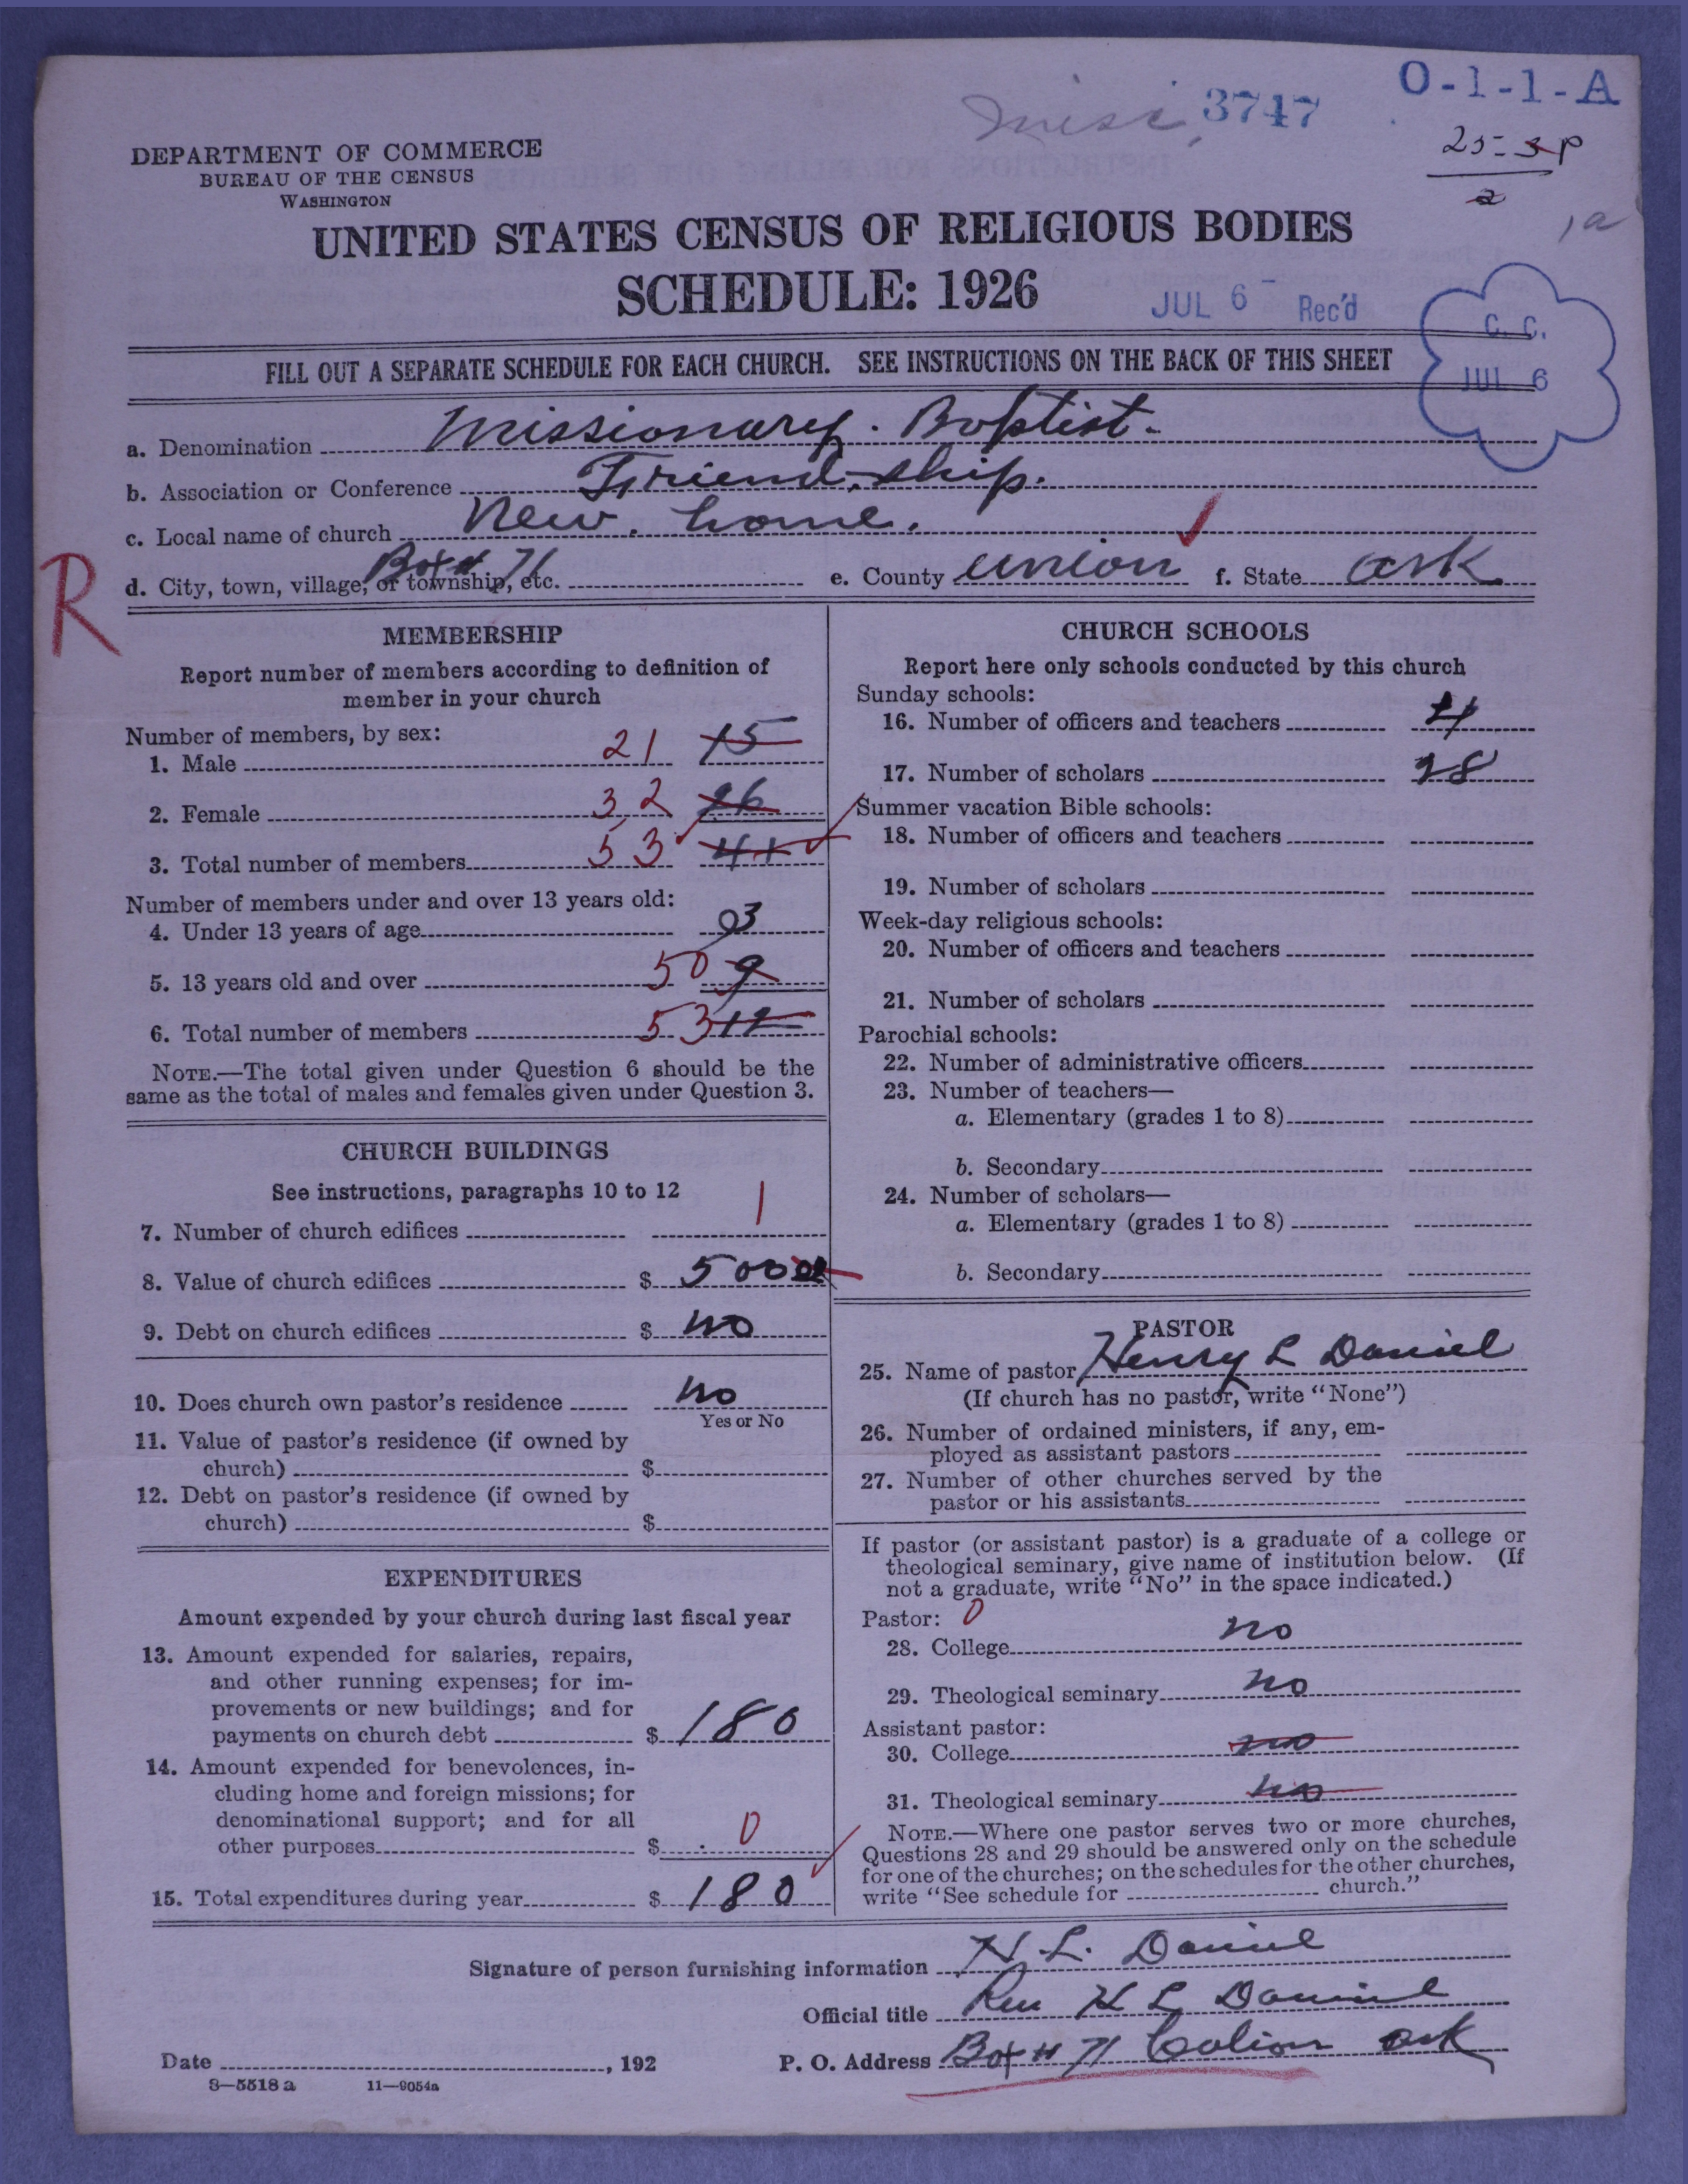 3747
O-1-1-A
DEPARTMENT OF COMMERCE
BUREAU OF THE CENSUS
WASHINGTON
UNITED STATES CENSUS OF RELIGIOUS BODIES
SCHEDULE: 1926
JUL 6 - Rec'd
C. C.
JUL 6
FILL OUT A SEPARATE SCHEDULE FOR EACH CHURCH. SEE INSTRUCTIONS ON THE BACK OF THIS SHEET
a. Denomination Missionary. Baptist.
b. Association or Conference Friend-ship.
c. Local name of church New. home.
d. City, town, village, or township, etc. Box # 71 e. County Union f. State Ark
R
MEMBERSHIP
Report number of members according to definition of
member in your church
Number of members, by sex:
1. Male 21 15
2. Female 32 26
3. Total number of members 53 41
Number of members under and over 13 years old:
4. Under 13 years of age 03
5. 13 years old and over 50 9
6. Total number of members 53 12
NOTE.—The total given under Question 6 should be the
same as the total of males and females given under Question 3.
CHURCH BUILDINGS
See instructions, paragraphs 10 to 12
7. Number of church edifices 1
8. Value of church edifices $ 500 00
9. Debt on church edifices $ no
10. Does church own pastor's residence no
Yes or No
11. Value of pastor's residence (if owned by
church) $
12. Debt on pastor's residence (if owned by
church) $
EXPENDITURES
Amount expended by your church during last fiscal year
13. Amount expended for salaries, repairs,
and other running expenses; for im-
provements or new buildings; and for
payments on church debt $ 180
14. Amount expended for benevolences, in-
cluding home and foreign missions; for
denominational support; and for all
other purposes $ 0
15. Total expenditures during year $ 180
CHURCH SCHOOLS
Report here only schools conducted by this church
Sunday schools:
16. Number of officers and teachers 4
17. Number of scholars 28
Summer vacation Bible schools:
18. Number of officers and teachers
19. Number of scholars
Week-day religious schools:
20. Number of officers and teachers
21. Number of scholars
Parochial schools:
22. Number of administrative officers
23. Number of teachers—
a. Elementary (grades 1 to 8)
b. Secondary
24. Number of scholars—
a. Elementary (grades 1 to 8)
b. Secondary
PASTOR
25. Name of pastor Henry L Daniel
(If church has no pastor, write "None")
26. Number of ordained ministers, if any, em-
ployed as assistant pastors
27. Number of other churches served by the
pastor or his assistants
If pastor (or assistant pastor) is a graduate of a college or
theological seminary, give name of institution below. (If
not a graduate, write "No" in the space indicated.)
Pastor: 0
28. College no
29. Theological seminary no
Assistant pastor:
30. College no
31. Theological seminary no
NOTE.—Where one pastor serves two or more churches,
Questions 28 and 29 should be answered only on the schedule
for one of the churches; on the schedules for the other churches,
write "See schedule for church."
Signature of person furnishing information H. L. Daniel
Official title Rev H L Daniel
Date , 192 P. O. Address Box # 71 Calion Ark
8—5518 a 11—9054a